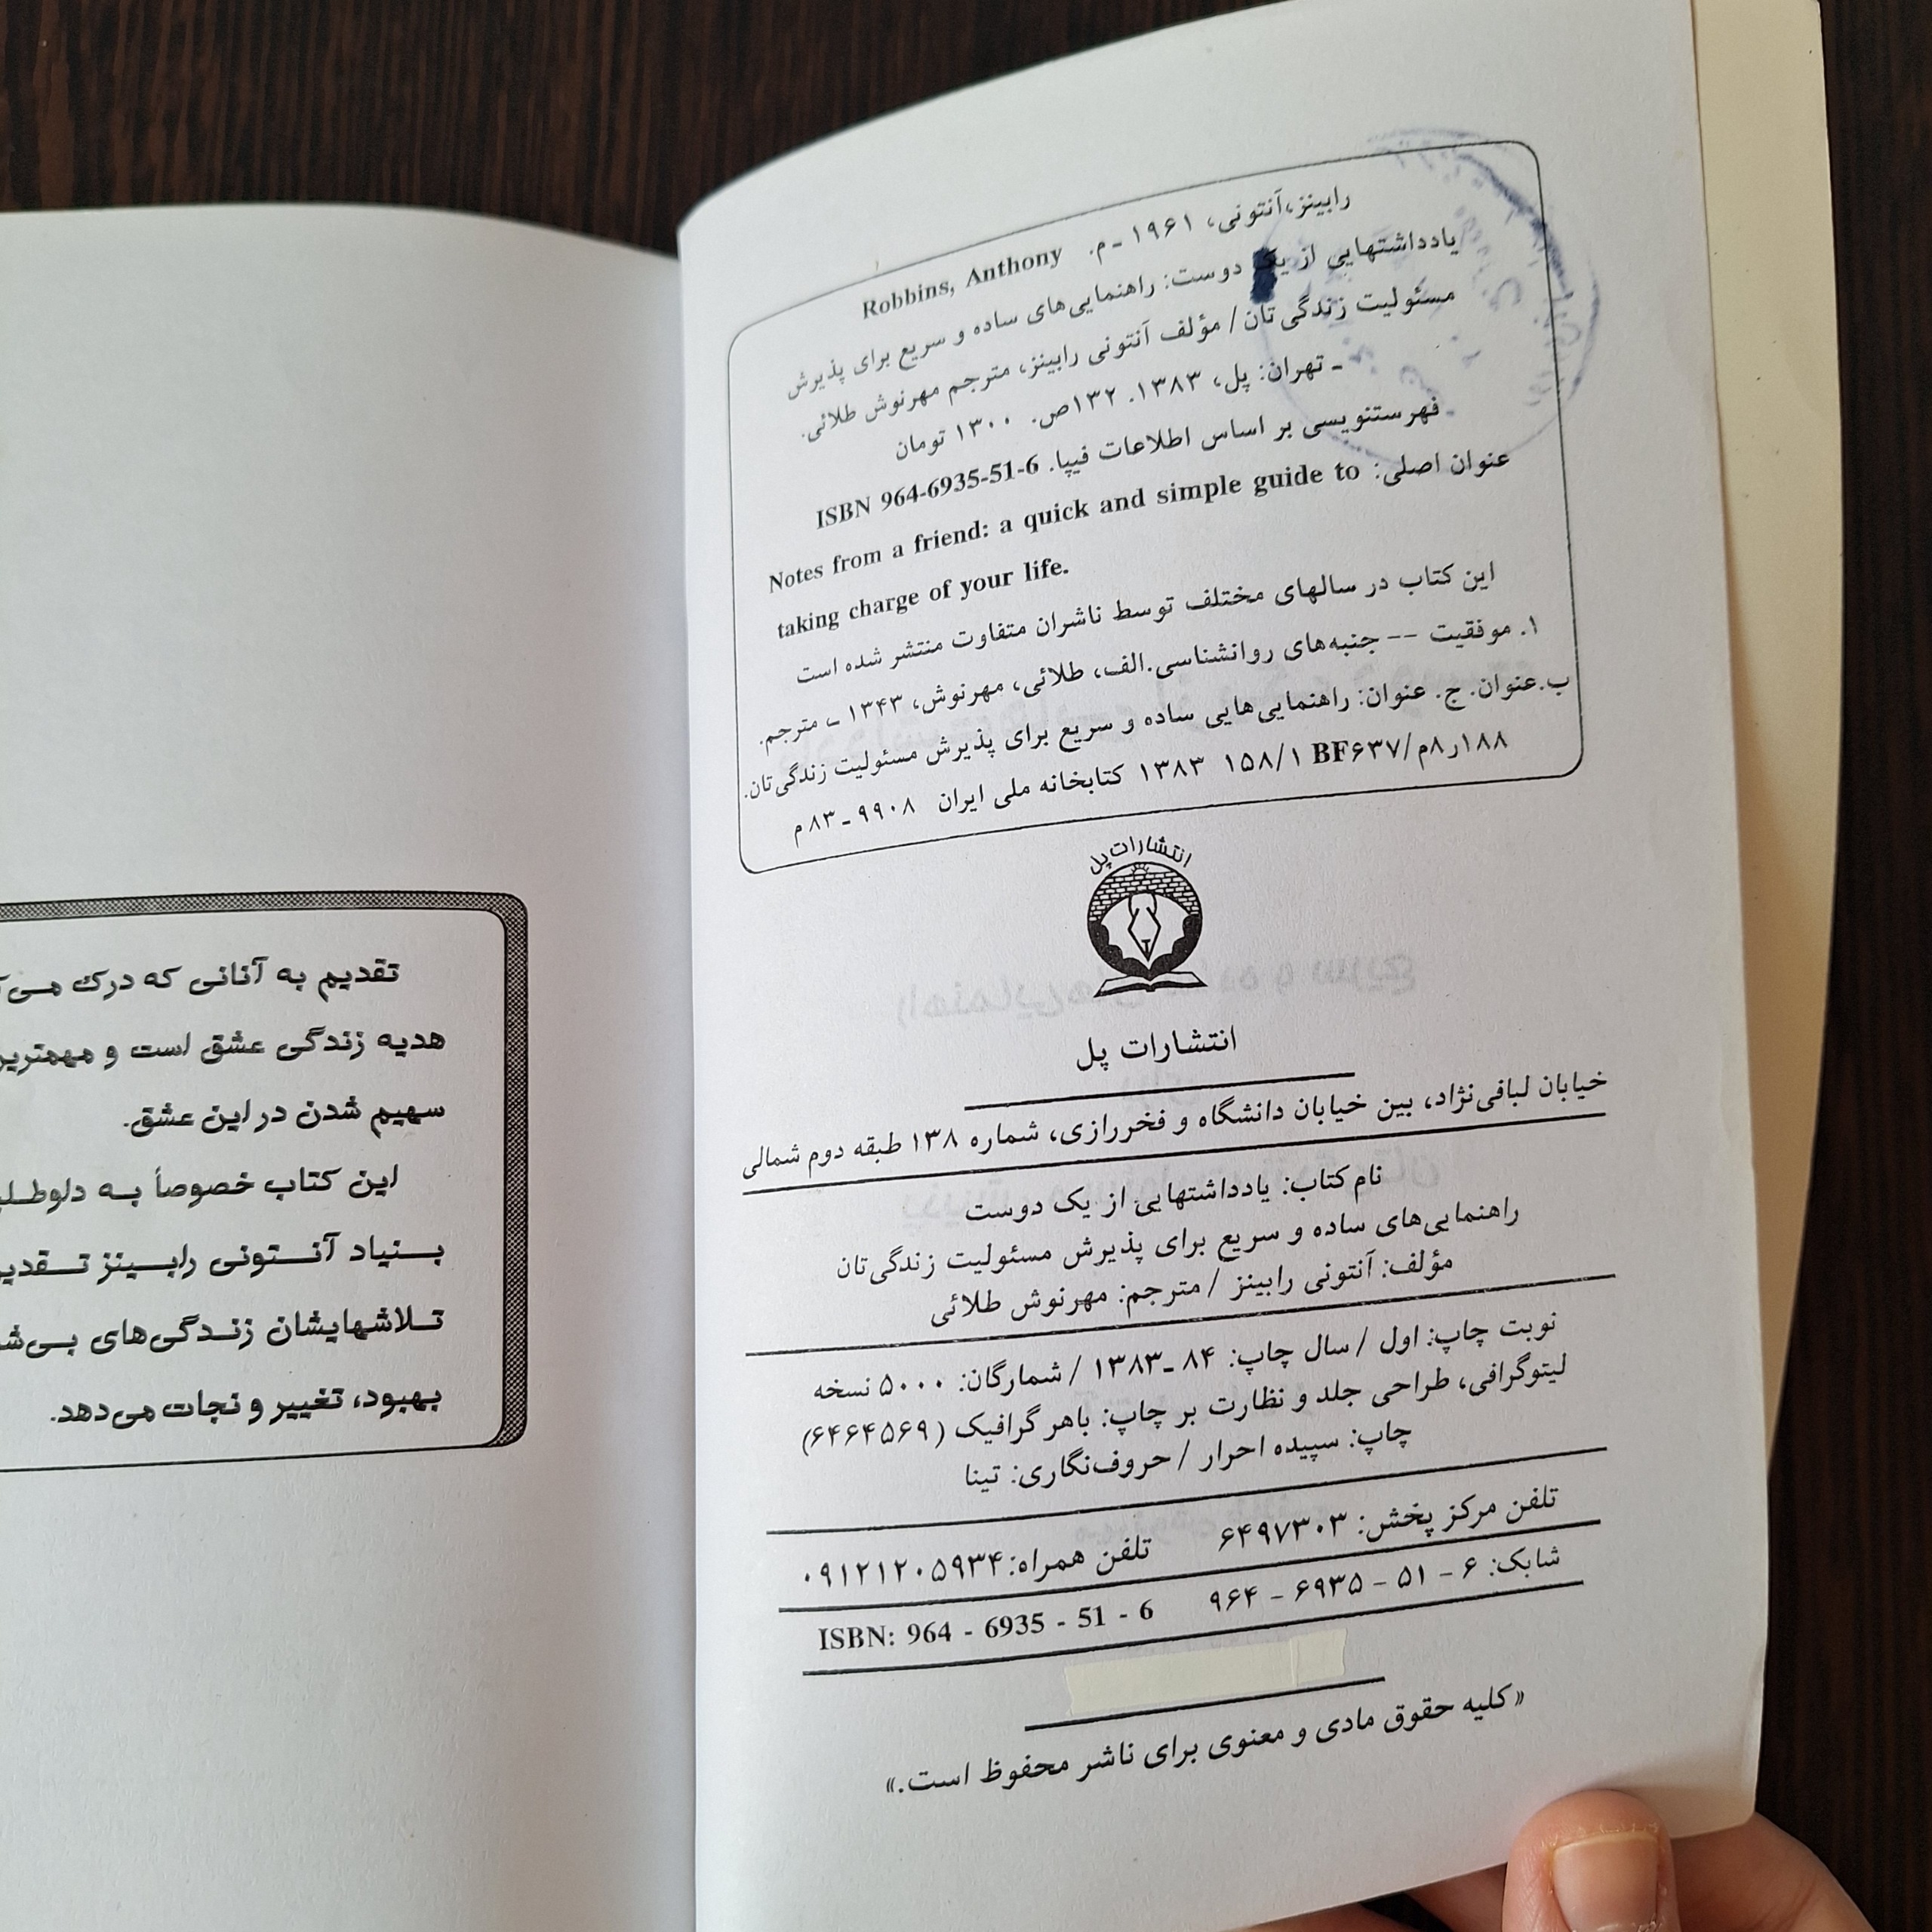 رابینز،آنتونی، ۱۹۶۱ ـ م. Robbins, Anthony
یادداشتهایی از یک دوست: راهنمایی‌های ساده و سریع برای پذیرش
مسئولیت زندگی‌تان / مؤلف آنتونی رابینز، مترجم مهرنوش طلائی.
ـ تهران: پل، ۱۳۸۳. ۱۳۲ص. ۱۳۰۰ تومان
فهرستنویسی بر اساس اطلاعات فیپا. ISBN 964-6935-51-6
عنوان اصلی: Notes from a friend: a quick and simple guide to
taking charge of your life.
این کتاب در سالهای مختلف توسط ناشران متفاوت منتشر شده است
۱. موفقیت -- جنبه‌های روانشناسی.الف، طلائی، مهرنوش، ۱۳۴۳ ـ مترجم.
ب.عنوان. ج. عنوان: راهنمایی‌هایی ساده و سریع برای پذیرش مسئولیت زندگی‌تان.
۱۸۸ر۸م/BF۶۳۷ ۱۵۸/۱ ۱۳۸۳ کتابخانه ملی ایران ۹۹۰۸ ـ ۸۳م
انتشارات پل
انتشارات پل
خیابان لبافی‌نژاد، بین خیابان دانشگاه و فخررازی، شماره ۱۳۸ طبقه دوم شمالی
نام کتاب: یادداشتهایی از یک دوست
راهنمایی‌های ساده و سریع برای پذیرش مسئولیت زندگی‌تان
مؤلف: آنتونی رابینز / مترجم: مهرنوش طلائی
نوبت چاپ: اول / سال چاپ: ۸۴ ـ۱۳۸۳ / شمارگان: ۵۰۰۰ نسخه
لیتوگرافی، طراحی جلد و نظارت بر چاپ: باهر گرافیک (۶۴۶۴۵۶۹)
چاپ: سپیده احرار / حروف‌نگاری: تینا
تلفن مرکز پخش: ۶۴۹۷۳۰۳ تلفن همراه:۰۹۱۲۱۲۰۵۹۳۴
شابک: ۶ - ۵۱ - ۶۹۳۵ - ۹۶۴ ISBN: 964 - 6935 - 51 - 6
«کلیه حقوق مادی و معنوی برای ناشر محفوظ است.»
تقدیم به آنانی که درک
هدیه زندگی عشق است و
سهیم شدن در این عشق.
این کتاب خصوصاً به
بنیاد آنتونی رابینز
تلاشهایشان زندگی‌های
بهبود، تغییر و نجات می‌دهد.